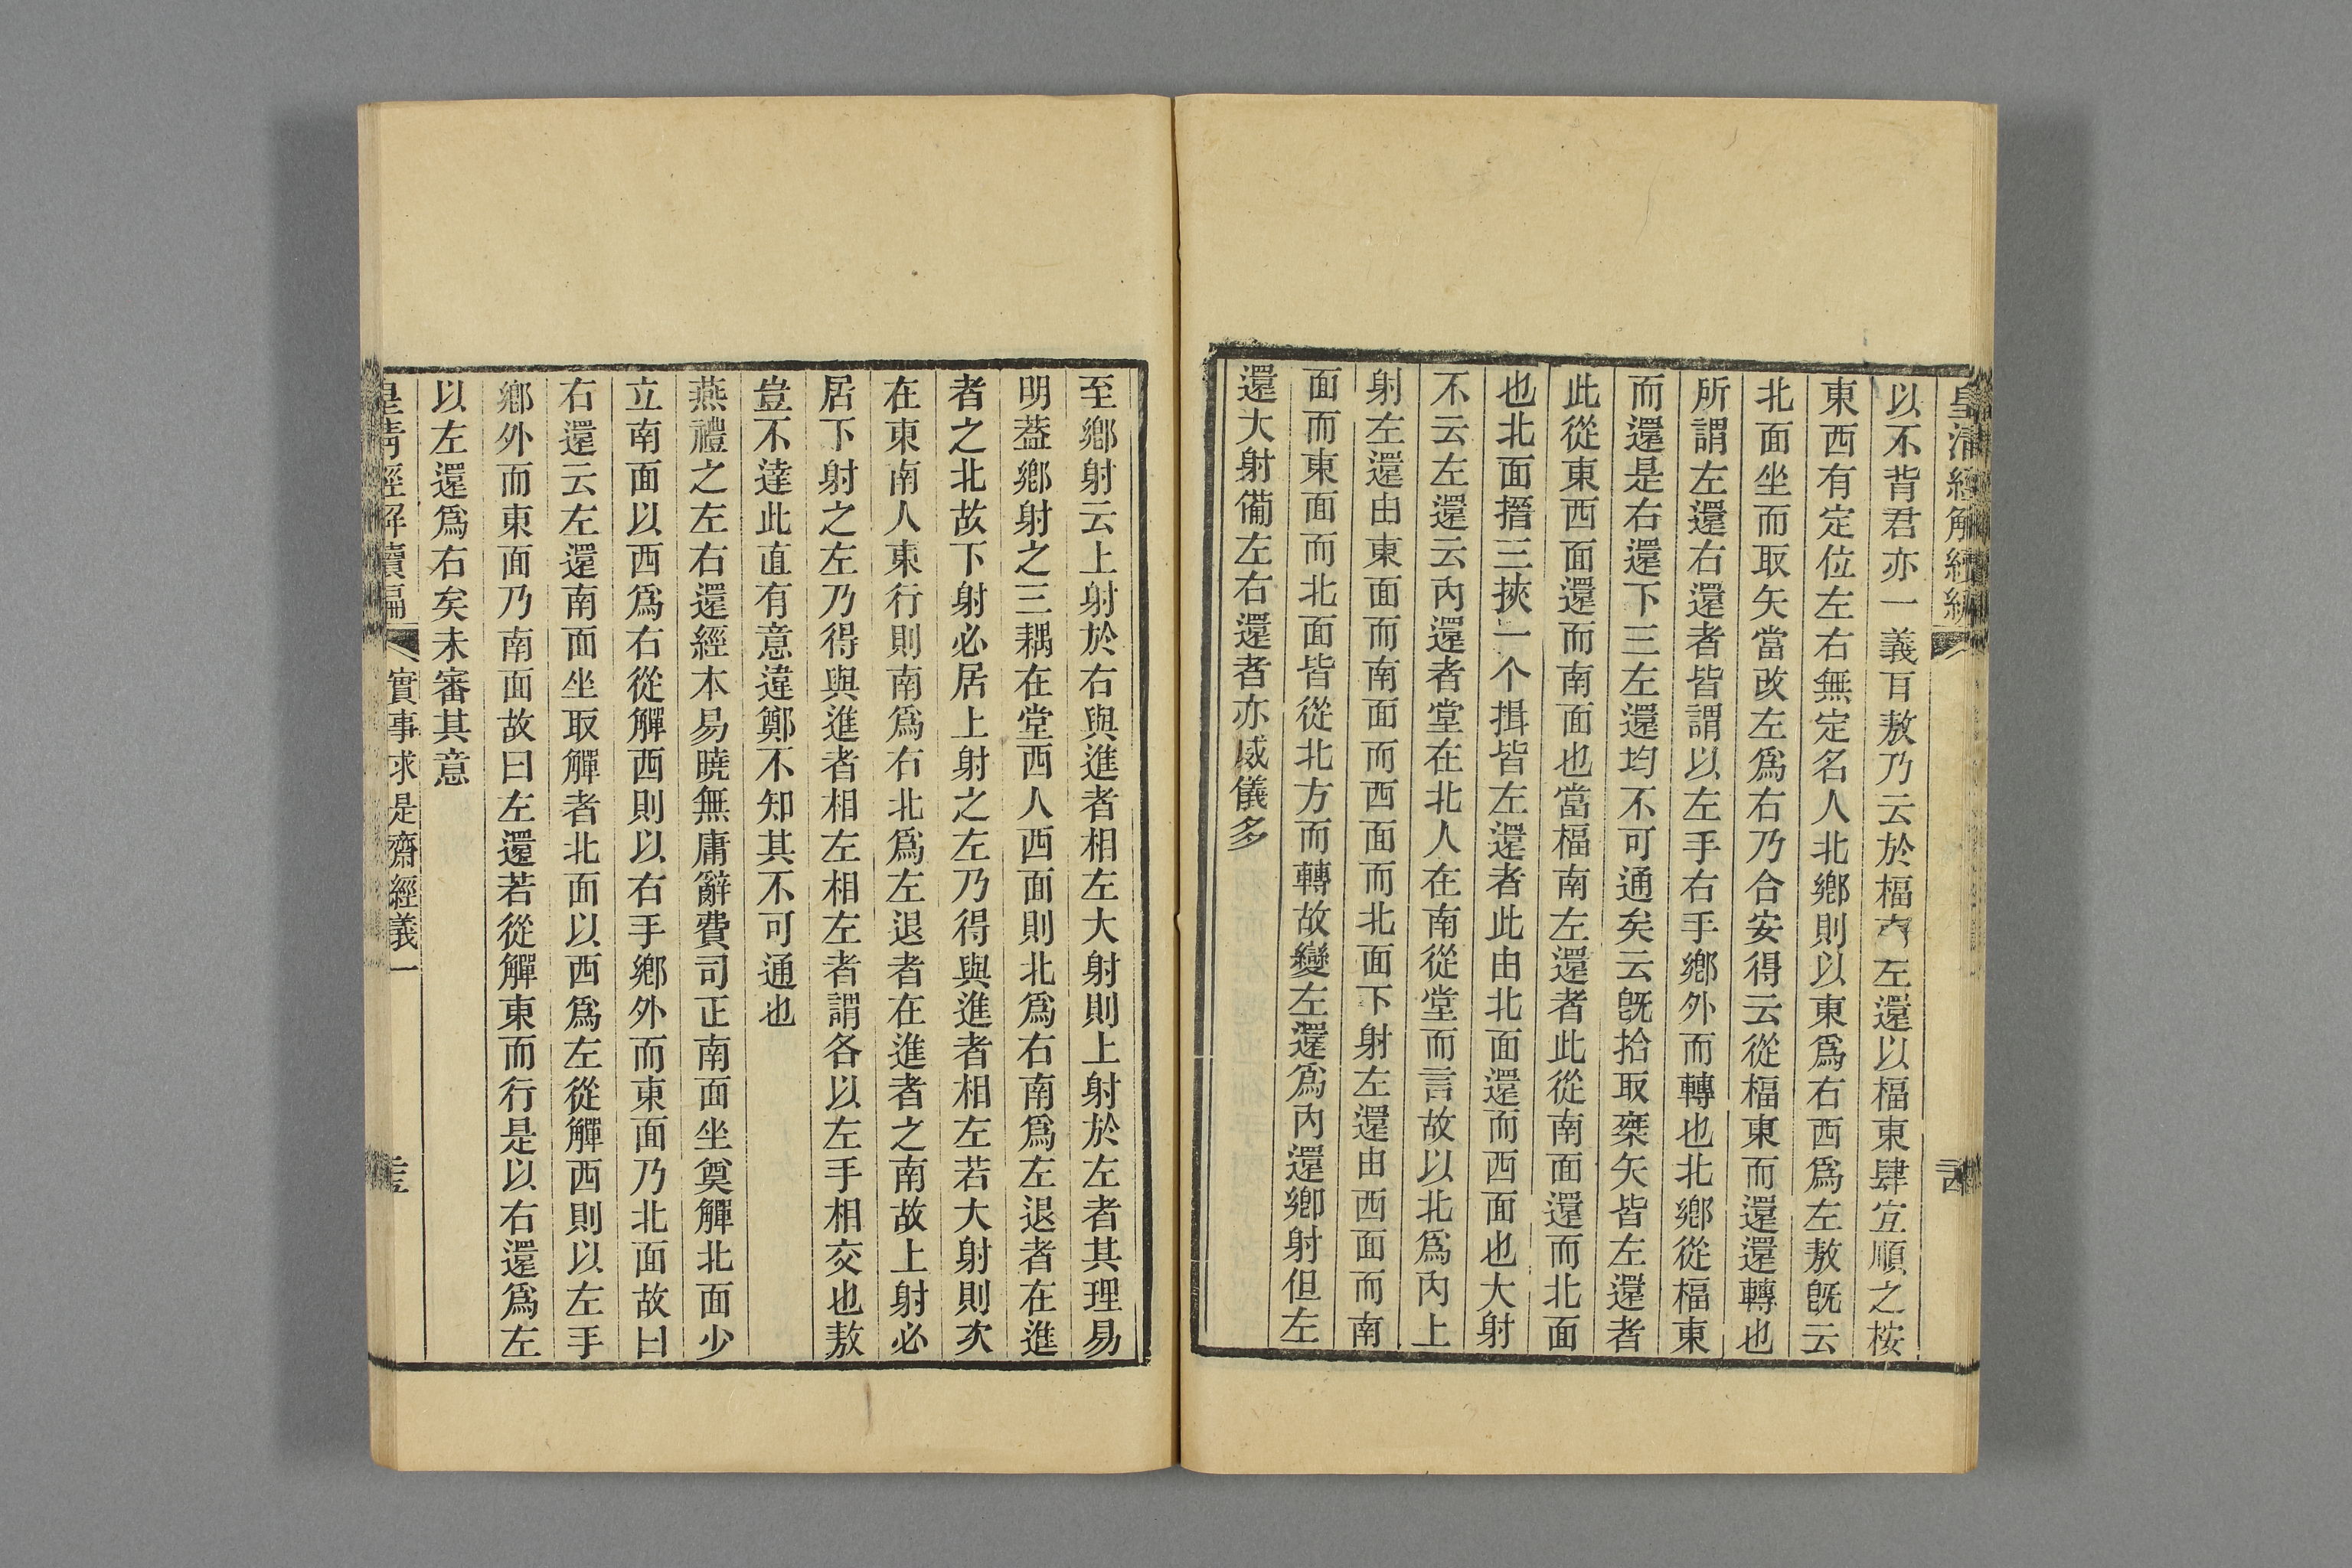 皇清經解續編
以不背君亦一義耳敖乃云於楅左還以楅東肆宜順之桉
東西有定位左右無定名人北鄉則以東爲右西爲左敖旣云
北面坐而取矢當改左爲右乃合安得云從楅東而還還轉也
所謂左還右還者皆謂以左手右手鄉外而轉也北鄉從楅東
而還是右還下三左還均不可通矣云旣拾取椉矢皆左還者
此從東西面還而南面也當楅南左還者此從南面還而北面
也北面搢三挾一个揖皆左還者此由北面還而西面也大射
不云左還云內還者堂在北人在南從堂而言故以北爲內上
射左還由東面而南面而西面而北面下射左還由西面而南
面而東面而北面皆從北方而轉故變左還爲內還鄉射但左
還大射備左右還者亦威儀多
至鄉射云上射於右與進者相左大射則上射於左者其理易
明葢鄉射之三耦在堂西人西面則北爲右南爲左退者在進
者之北故下射必居上射之左乃得與進者相左若大射則次
在東南人東行則南爲右北爲左退者在進者之南故上射必
居下射之左乃得與進者相左相左者謂各以左手相交也敖
豈不達此直有意違鄭不知其不可通也
燕禮之左右還經本易曉無庸辭費司正南面坐奠觶北面少
立南面以西爲右從觶西則以右手鄉外而東面乃北面故曰
右還云左還南面坐取觶者北面以西爲左從觶西則以左手
鄉外而東面乃南面故曰左還若從觶東而行是以右還爲左
以左還爲右矣未審其意
皇清經解續編
實事求是齋經義一